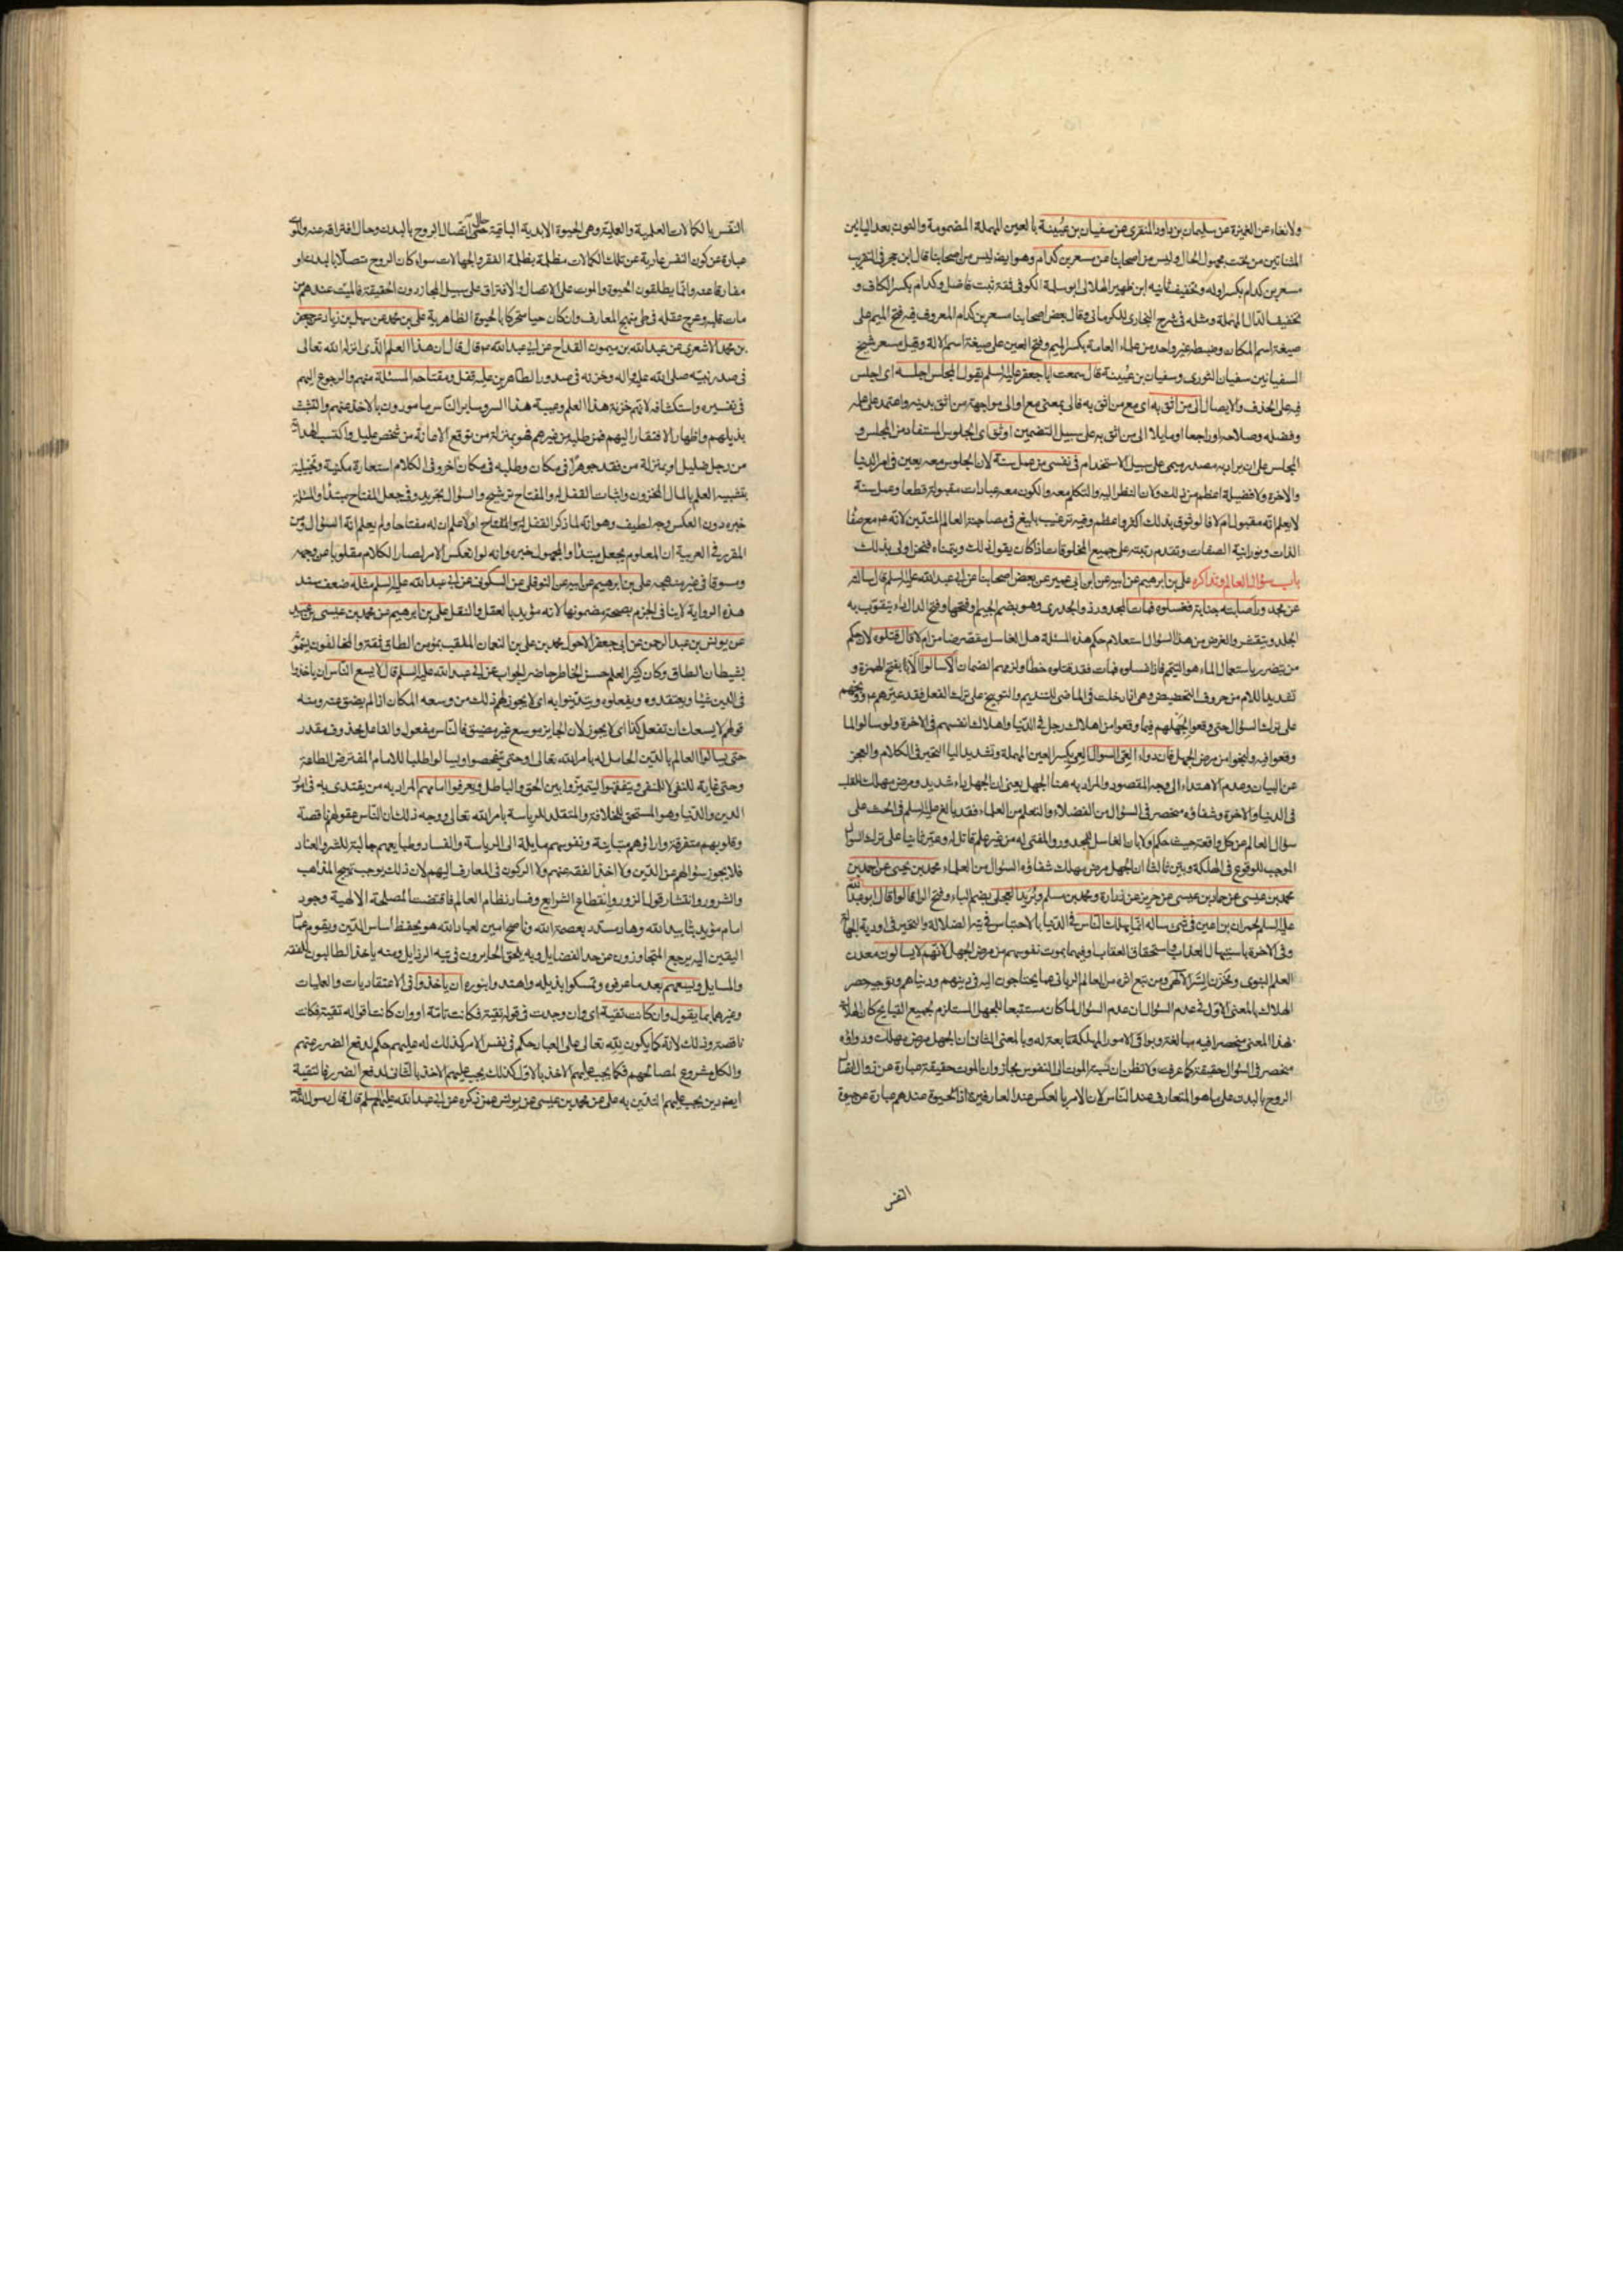 ولانغاء عن الغريزة عن سليمان بن داود المنقرى عن سفيان بن عيينة بالعين المهملة المضمومة والنون بعد اليائين
المثناتين من تحت مجهول الحال وليس من اصحابنا عن مسعر بن كدام وهو ايضا ليس من اصحابنا قال ابن حجر فى التقريب
مسعر بن كدام بكسر اوله وتخفيف ثانيه ابن ظهير الهلالى ابو سلمة الكوفى ثقة ثبت فاضل وكدام بكسر الكاف و
تخفيف الدال المهملة ومثله فى شرح البخارى للكرمانى وقال بعض اصحابنا مسعر بن كدام المعروف فيه فتح الميم على
صيغة اسم المكان وضبطه غير واحد من علماء العامة بكسر الميم وفتح العين على صيغة اسم الالة وقيل مسعر شيخ
السفيانين سفيان الثورى وسفيان بن عيينة قال سمعت ابا جعفر عليه السلم يقول لمجلس اجلسه اى اجلس
فيه على الحذف والايصال الى من اثق به اى مع من اثق به فالى بمعنى مع او الى مواجهة من اثق بدينه واعتمد على علمه
وفضله وصلاحه او راجعا او مايلا الى من اثق به على سبيل التضمين اوثق اى الجلوس المستفاد من المجلس و
المجلس على ان يراد به مصدر ميمى على سبيل الاستخدام فى نفسى من عمل سنة لان الجلوس معه يعين فى امر الدنيا
والاخرة ولا فضيلة اعظم من ذلك ولان النظر اليه والتكلم معه والكون معه عبادات مقبولة قطعا وعمل سنة
لا يعلم انه مقبول ام لا فالوثوق بذلك اكثر واعظم وفيه ترغيب بليغ فى مصاحبة العالم المتدين لانه عم مع صفا
الذات ونورانية الصفات وتقدم رتبته على جميع المخلوقات اذا كان يقول ذلك ويتمناه فنحن اولى بذلك
باب سؤال العالم وتذاكره على بن ابرهيم عن ابيه عن ابن ابى عمير عن بعض اصحابنا عن ابى عبد الله عليه السلم قال سالته
عن مجدور اصابته جنابة فغسلوه فمات المجدور ذو الجدرى وهو بضم الجيم وفتحها وفتح الدال داء يتقوب به
الجلد ويتقشر والغرض من هذا السؤال استعلام حكم هذه المسئلة هل الغاسل مقصر ضامن ام لا قال قتلوه لان حكم
من يتضرر باستعمال الماء هو التيمم فاذا غسلوه فمات فقد قتلوه خطا ولزمهم الضمان الا سالوا الا بفتح الهمزة و
تشديد اللام من حروف التحضيض وهى اذا دخلت فى الماضى للتنديم والتوبيخ على ترك الفعل فقد عيرهم عم ووبخهم
على ترك السؤال حتى وقعوا لجهلهم فيما وقعوا من اهلاك رجل فى الدنيا واهلاك انفسهم فى الاخرة ولو سالوا لما
وقعوا فيه ولنجوا من مرض الجهل فان دواء العى السؤال العى بكسر العين المهملة وتشديد اليا التحير فى الكلام والعجز
عن البيان وعدم الاهتداء الى وجه المقصود والمراد به هنا الجهل يعنى ان الجهل داء شديد ومرض مهلك للقلب
فى الدنيا والاخرة وشفاؤه منحصر فى السؤال من الفضلاء والتعلم من العلماء فقد بالغ عليه السلم فى الحث على
سؤال العالم عن كل واقعة حيث حكم اولا بان الغاسل للمجدور والمفتى له من غير علم قاتل له وعير ثانيا على ترك السؤال
الموجب للوقوع فى الهلكة وبين ثالثا ان الجهل مرض مهلك شفاؤه السؤال من العلماء محمد بن يحيى عن احمد بن
محمد بن عيسى عن حماد بن عيسى عن حريز عن زرارة ومحمد بن مسلم وبريد العجلى بضم الباء وفتح الرا قالوا قال ابو عبد الله
عليه السلم لحمران بن اعين فى شىء ساله انما يهلك الناس فى الدنيا بالاحتباس فى تيه الضلالة والتحير فى اودية الجهالة
وفى الاخرة باستيهال العذاب واستحقاق العقاب او فيهما بموت نفوسهم من مرض الجهل لانهم لا يسالون معدن
العلم النبوى ومخزن السر الالهى ومن تبع اثره من العالم الربانى عما يحتاجون اليه فى دينهم ودنياهم وتوجيه حصر
الهلاك بالمعنى الاول فى عدم السؤال ان عدم السؤال لما كان مستتبعا للجهل المستلزم لجميع القبايح كان الهلاك
بهذا المعنى منحصرا فيه مبالغة وبواقى الامور المهلكة تابعة له وبالمعنى الثانى ان الجهل مرض مهلك ودواؤه
منحصر فى السؤال حقيقة كما عرفت ولا تظن ان نسبة الموت الى النفوس مجاز وان الموت حقيقة عبارة عن زوال اتصال
الروح بالبدن على ما هو المتعارف عند الناس لان الامر بالعكس عند العارفين اذ الحيوة عندهم عبارة عن حيوة
النفس
النفس بالكمالات العلمية والعملية وهى الحيوة الابدية الباقية حالتى اتصال الروح بالبدن وحال افتراقه عنه والموت
عبارة عن كون النفس عارية عن تلك الكمالات مظلمة بظلمة الفقر والجهالات سواء كان الروح متصلا بالبدن او
مفارقا عنه وانما يطلقون الحيوة والموت على الاتصال والافتراق على سبيل المجاز دون الحقيقة فالميت عندهم من
مات قلبه وعرج عقله فى طى منهج المعارف وان كان حيا متحركا بالحيوة الظاهرية على بن محمد عن سهل بن زياد عن جعفر
بن محمد الاشعرى عن عبد الله بن ميمون القداح عن ابى عبد الله عم قال قال ان هذا العلم الذى انزله الله تعالى
فى صدر نبيه صلى الله عليه واله وخزنه فى صدور الطاهرين عليه قفل ومفتاحه المسئلة منهم والرجوع اليهم
فى تفسيره واستكشافه لانهم خزنة هذا العلم وعيبة هذا السر وساير الناس مامورون بالاخذ عنهم والتشبث
بذيلهم واظهار الافتقار اليهم فمن طلبه من غيرهم فهو بمنزلة من توقع الامانة من شخص عليل واكتسب الهداية
من رجل ضليل او بمنزلة من فقد جوهرا فى مكان وطلبه فى مكان اخر وفى الكلام استعارة مكنية وتخييلية
بتشبيه العلم بالمال المخزون واثبات القفل له والمفتاح ترشيح والسؤال تجريد وفى جعل المفتاح مبتدا والمسئلة
خبره دون العكس وجه لطيف وهو انه لما ذكر القفل لزم المفتاح اولا علم ان له مفتاحا ولم يعلم انه السؤال ومن
المقرر فى العربية ان المعلوم يجعل مبتدا والمجهول خبره وانه لو انعكس الامر لصار الكلام مقلوبا عن وجهه
ومسوقا فى غير منهجه على بن ابرهيم عن ابيه عن النوفلى عن السكونى عن ابى عبد الله عليه السلم مثله ضعف سند
هذه الرواية لا ينافى الجزم بصحة مضمونها لانه مؤيد بالعقل والنقل على بن ابرهيم عن محمد بن عيسى بن عبيد
عن يونس بن عبد الرحمن عن ابى جعفر الاحول محمد بن على بن النعمان الملقب بمومن الطاق ثقة والمخالفون يلقبونه
بشيطان الطاق وكان كثير العلم حسن الخاطر حاضر الجواب عن ابى عبد الله عليه السلم قال لا يسع الناس ان ياخذوا
فى الدين شيئا ويعتقدوه ويفعلوه ويتدينوا به اى لا يجوز لهم ذلك من وسعه المكان اذا لم يضق عنه ومنه
قولهم لا يسعك ان تفعل كذا اى لا يجوز لان الجايز موسع غير مضيق فالناس مفعول والفاعل محذوف مقدر
حتى يسالوا العالم بالدين الحامل له بامر الله تعالى او حتى يتفحصوا ويسالوا طلبا للامام المفترض الطاعة
وحتى غاية للنفى لا للمنفى ويتفقهوا ليتميزوا بين الحق والباطل ويعرفوا امامهم المراد به من يقتدى به فى امور
الدين والدنيا وهو المستحق للخلافة والمتقلد للرياسة بامر الله تعالى ووجه ذلك ان الناس عقولهم ناقصة
وقلوبهم متفرقة واراؤهم متباينة ونفوسهم مايلة الى الرياسة والفساد وطبايعهم جالبة للشر والعناد
فلا يجوز سؤالهم عن الدين ولا اخذ الفقه عنهم ولا الركون فى المعارف اليهم لان ذلك يوجب تهرج المذاهب
والشرور وانتشار قول الزور وانقطاع الشرايع وفساد نظام العالم فاقتضت المصلحة الالهية وجود
امام مؤيد بتاييد الله وهاد مسدد بعصمة الله وناصح امين لعباد الله هو يحفظ اساس الدين ويقوم عماد
اليقين اليه يرجع المتجاوزون عن حد الفضايل وبه يلحق الحايرون فى تيه الرذايل ومنه ياخذ الطالبون الفقه
والمسايل ويسعهم بعد ما عرفوه وتمسكوا بذيله واهتدوا بنوره ان ياخذوا فى الاعتقاديات والعمليات
وغيرهما بما يقول وان كانت تقية اى وان وجدت فى قوله تقية فكانت تامة او وان كانت اقواله تقية فكانت
ناقصة وذلك لانه كما يكون لله تعالى على العباد حكم فى نفس الامر كذلك له عليهم حكم لدفع الضرر عنهم
والكل مشروع لمصالحهم فكما يجب عليهم الاخذ بالاول كذلك يجب عليهم الاخذ بالثانى لدفع الضرر فالتقية
ايضا دين يجب عليهم التدين به على عن محمد بن عيسى عن يونس عمن ذكره عن ابى عبد الله عليه السلم قال قال رسول الله